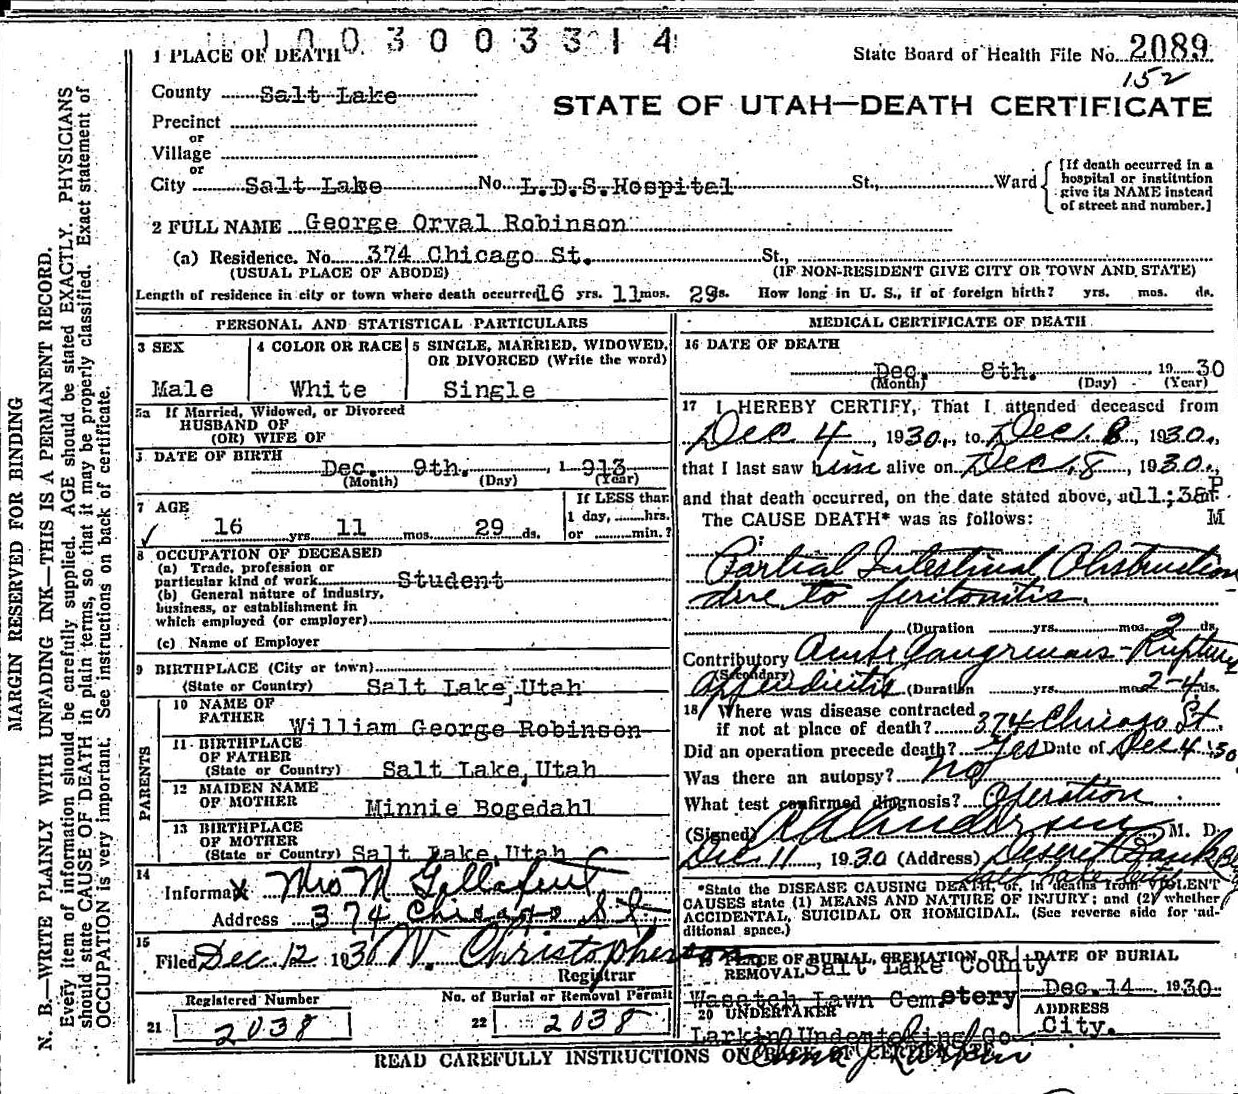 1003003314
1 PLACE OF DEATH
State Board of Health File No. 2089
152
County Salt Lake
STATE OF UTAH—DEATH CERTIFICATE
Precinct
or
Village
or
City Salt Lake No. L.D.S.Hospital St., Ward
[If death occurred in a
hospital or institution
give its NAME instead
of street and number.]
2 FULL NAME George Orval Robinson
(a) Residence. No. 374 Chicago St. St.,
(USUAL PLACE OF ABODE) (IF NON-RESIDENT GIVE CITY OR TOWN AND STATE)
Length of residence in city or town where death occurred 16 yrs. 11 mos. 29 s. How long in U. S., if of foreign birth? yrs. mos. ds.
PERSONAL AND STATISTICAL PARTICULARS
3 SEX
Male
4 COLOR OR RACE
White
5 SINGLE, MARRIED, WIDOWED,
OR DIVORCED (Write the word)
Single
5a If Married, Widowed, or Divorced
HUSBAND OF
(OR) WIFE OF
DATE OF BIRTH
Dec. 9th. , 1 913
(Month) (Day) (Year)
7 AGE
16 yrs. 11 mos. 29 ds.
If LESS than
1 day, hrs.
or min.?
8 OCCUPATION OF DECEASED
(a) Trade, profession or
particular kind of work Student
(b) General nature of industry,
business, or establishment in
which employed (or employer)
(c) Name of Employer
9 BIRTHPLACE (City or town)
(State or Country) Salt Lake, Utah
PARENTS
10 NAME OF
FATHER William George Robinson
11 BIRTHPLACE
OF FATHER
(State or Country) Salt Lake, Utah
12 MAIDEN NAME
OF MOTHER Minnie Bogedahl
13 BIRTHPLACE
OF MOTHER
(State or Country) Salt Lake, Utah
14
Informa X Mrs M
Address 374 Chicago St
15
Filed Dec 12 1930 W. Christopherson
Registrar
Registered Number
21 2038
No. of Burial or Removal Permit
22 2038
MEDICAL CERTIFICATE OF DEATH
16 DATE OF DEATH
Dec. 8th. 19 30
(Month) (Day) (Year)
17 I HEREBY CERTIFY, That I attended deceased from
Dec 4, 1930, to Dec. 8, 1930,
that I last saw him alive on Dec. 8, 1930,
and that death occurred, on the date stated above, at 11:38 P
M
The CAUSE DEATH* was as follows:
Partial Intestinal Obstruction
due to peritonitis.
(Duration yrs. mos. ds.
Contributory Acute Gangrenous-Ruptured
(Secondary)
Appendicitis (Duration yrs. mos 2-4 ds.
18 Where was disease contracted
if not at place of death? 374 Chicago St.
Did an operation precede death? Yes Date of Dec 4 '30
Was there an autopsy? no
What test confirmed diagnosis? Operation
(Signed) Anderson, M. D.
Dec 11, 1930 (Address) Deseret Bank B
Salt Lake City
*State the DISEASE CAUSING DEATH, or, in deaths from VIOLENT
CAUSES state (1) MEANS AND NATURE OF INJURY; and (2) whether
ACCIDENTAL, SUICIDAL OR HOMICIDAL. (See reverse side for ad-
ditional space.)
19 PLACE OF BURIAL, CREMATION, OR
REMOVAL Salt Lake County
Wasatch Lawn Cemetery
DATE OF BURIAL
Dec. 14 1930
20 UNDERTAKER
Larkin Undertaking Co
ADDRESS
City.
READ CAREFULLY INSTRUCTIONS ON BACK OF CERTIFICATE
MARGIN RESERVED FOR BINDING
N. B.—WRITE PLAINLY WITH UNFADING INK—THIS IS A PERMANENT RECORD.
Every item of information should be carefully supplied. AGE should be stated EXACTLY. PHYSICIANS
should state CAUSE OF DEATH in plain terms, so that it may be properly classified. Exact statement of
OCCUPATION is very important. See instructions on back of certificate.